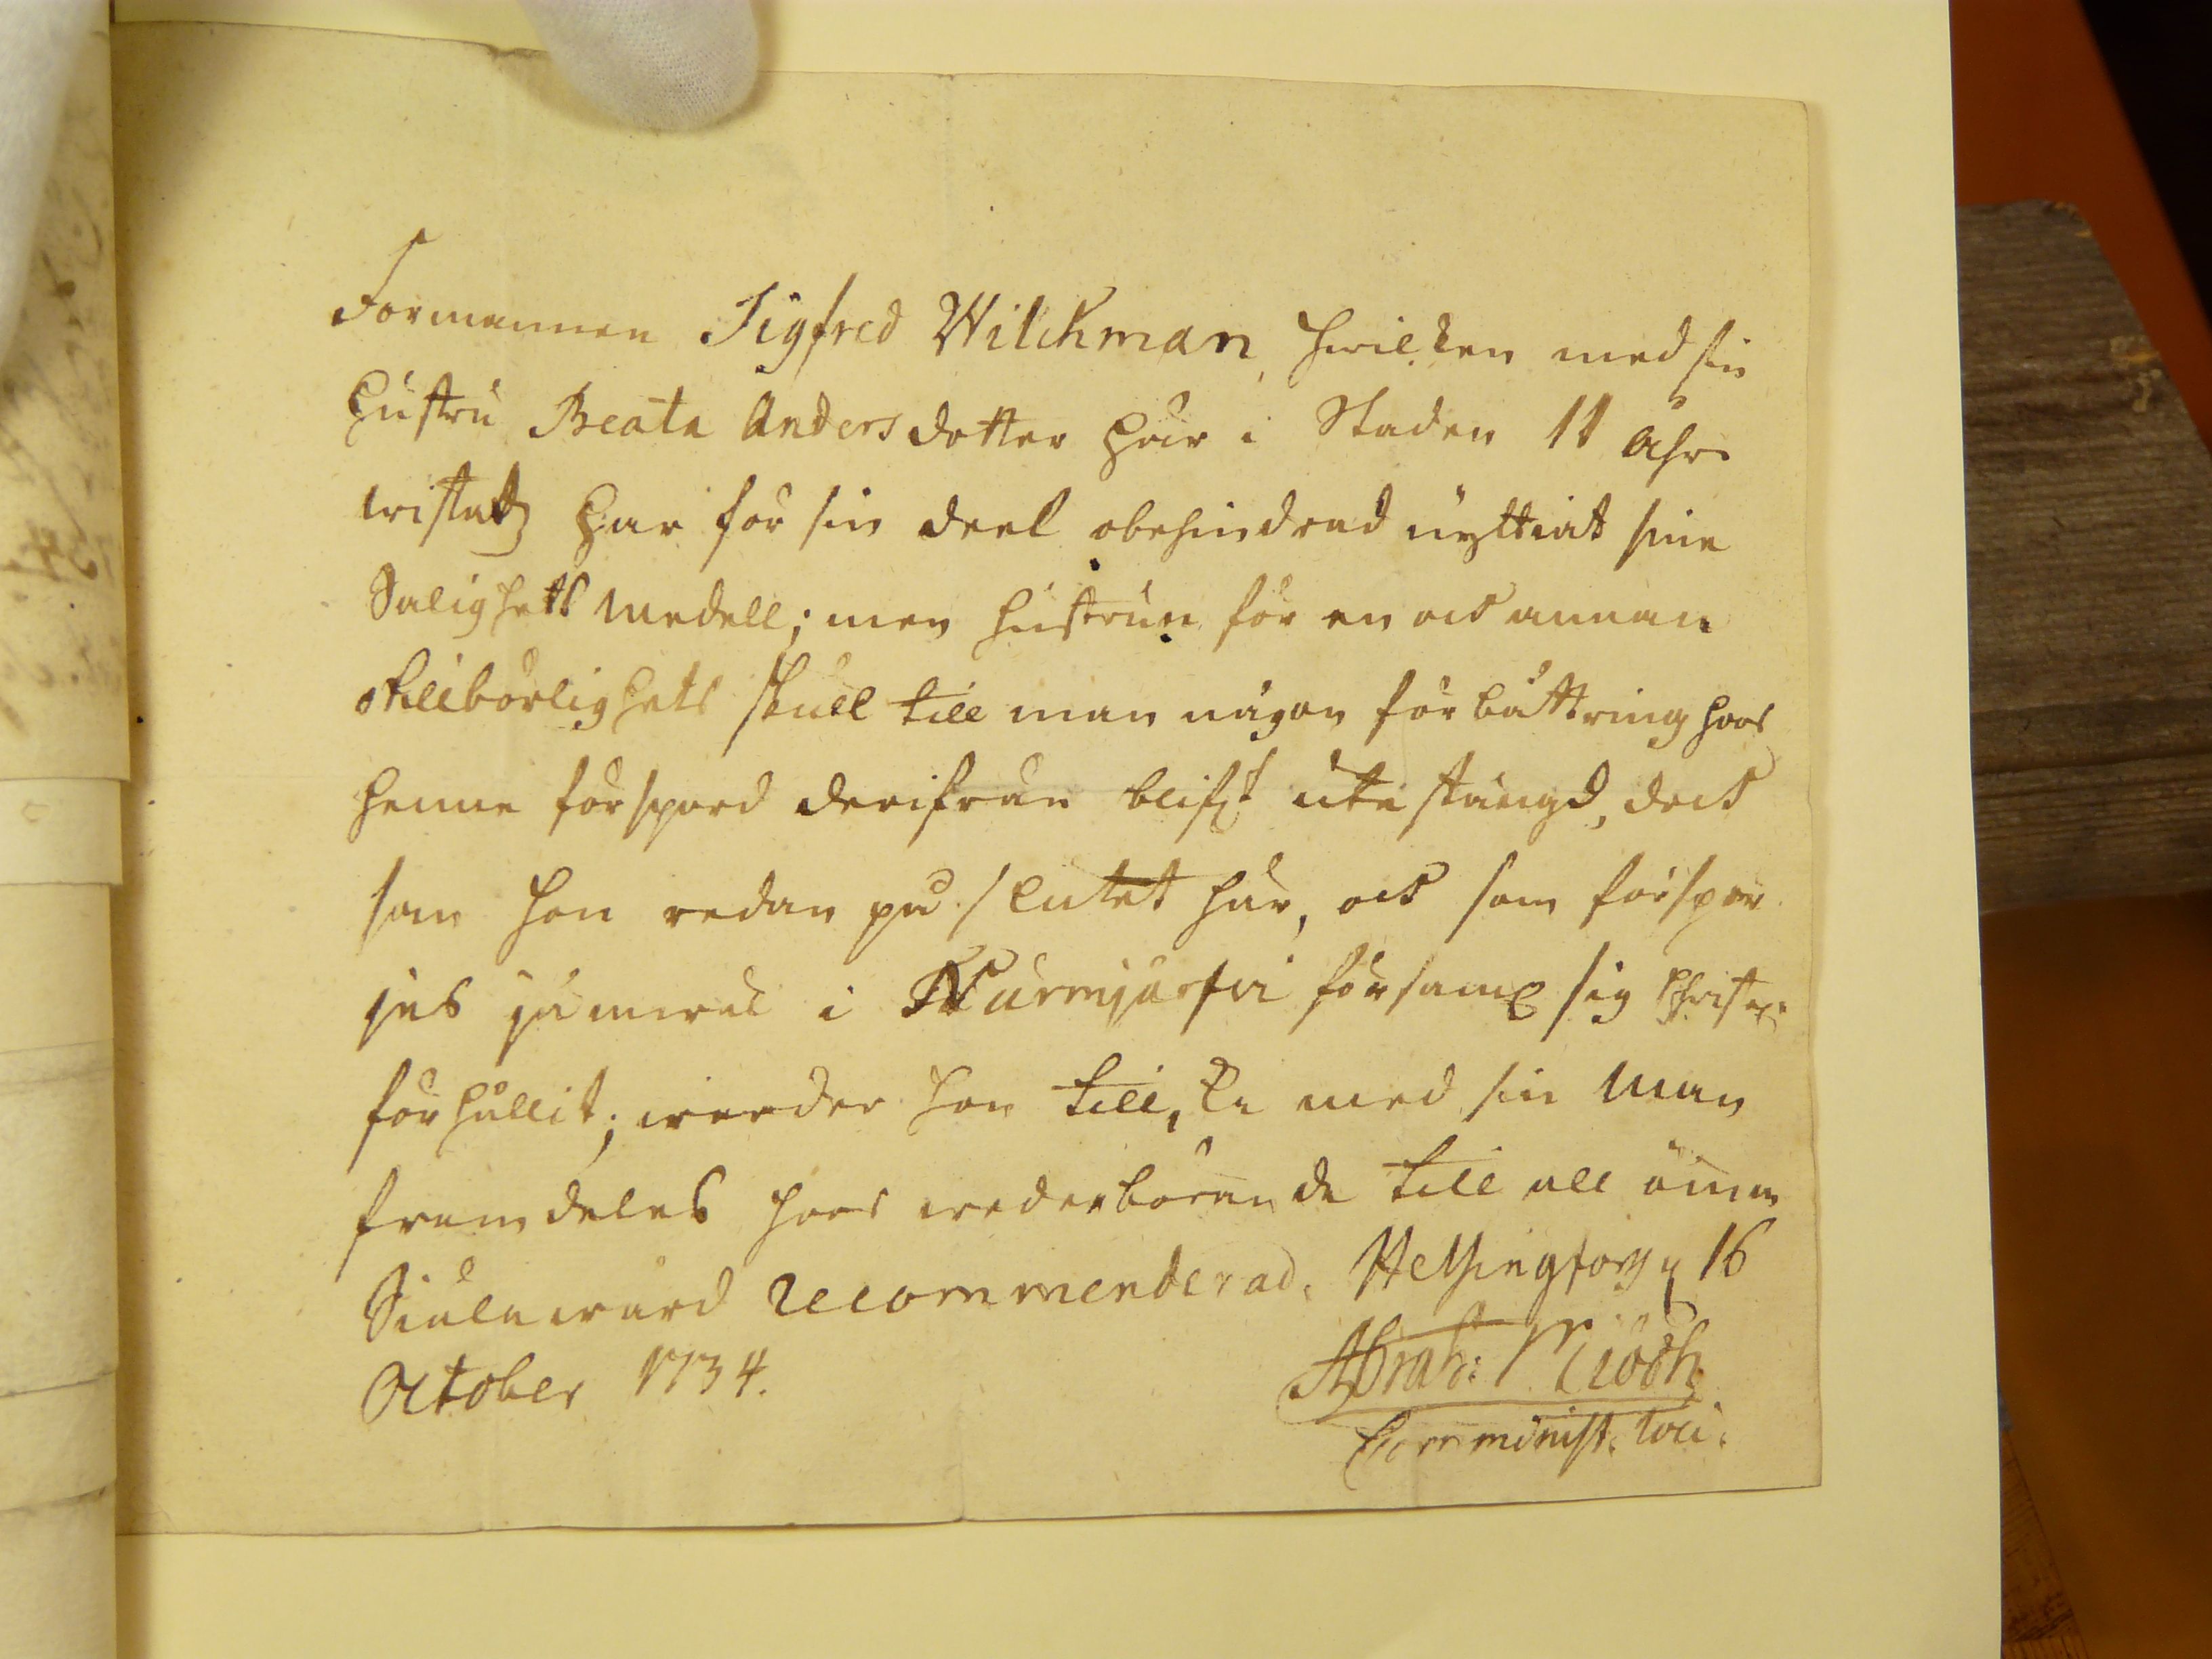 Formannen Sigfred Wilckman, hwilken med sin
hustru Beata Andersdotter här i Staden 11 åhr
wistatz har för sin deel obehindrad nyttiat sine
Salighets medell; men hustrun för en ock annan
otilbörlighets skull till man någon förbättring hoos
henne försport derifrån blifit utestängd, dock
som hon redan på slutet här, ock som förspör
jes jämwäl i Nurmijärfwi församl sig Christel:
förhållit; warder hon till, lika med sin Man
framdeles hoos wederbörande till all öm
Siälawård recommenderad. Helsingfors 16
October 1734.
Abrah:
Comminist. loci.